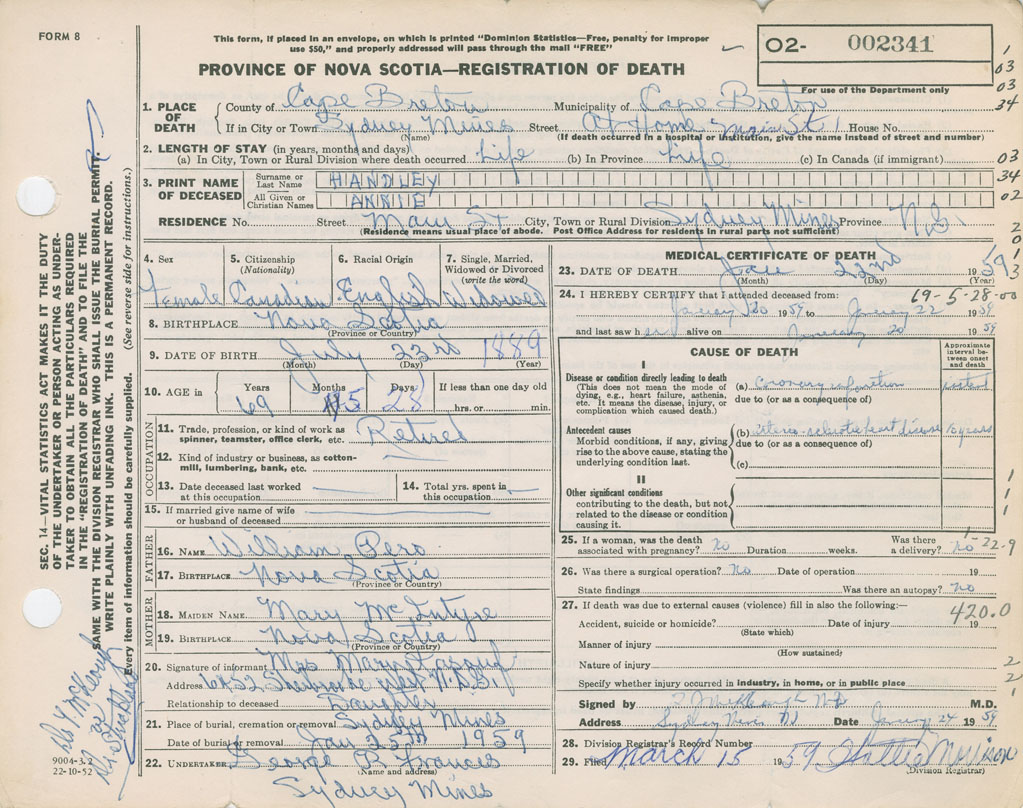 FORM 8
This form, if placed in an envelope, on which is printed "Dominion Statistics—Free, penalty for improper
use $50," and properly addressed will pass through the mail "FREE"
O2- 002341
For use of the Department only
PROVINCE OF NOVA SCOTIA—REGISTRATION OF DEATH
1. PLACE OF DEATH
County of Cape Breton Municipality of Cape Breton
If in City or Town Sydney Mines Street At Home Main St House No.
(Name) (If death occurred in a hospital or institution, give the name instead of street and number)
2. LENGTH OF STAY (in years, months and days)
(a) In City, Town or Rural Division where death occurred Life (b) In Province Life (c) In Canada (if immigrant)
3. PRINT NAME OF DECEASED
Surname or Last Name HANDLEY
All Given or Christian Names ANNIE
RESIDENCE No. Street Main St City, Town or Rural Division Sydney Mines Province N.S.
(Residence means usual place of abode. Post Office Address for residents in rural parts not sufficient)
4. Sex
Female
5. Citizenship (Nationality)
Canadian
6. Racial Origin
English
7. Single, Married, Widowed or Divorced (write the word)
Widowed
8. BIRTHPLACE Nova Scotia
(Province or Country)
9. DATE OF BIRTH July 23rd 1889
(Month) (Day) (Year)
10. AGE in Years Months Days If less than one day old
69 5 28 hrs. or min.
OCCUPATION
11. Trade, profession, or kind of work as
spinner, teamster, office clerk, etc. Retired
12. Kind of industry or business, as cotton-
mill, lumbering, bank, etc.
13. Date deceased last worked
at this occupation
14. Total yrs. spent in
this occupation
15. If married give name of wife
or husband of deceased
FATHER
16. NAME William Pero
17. BIRTHPLACE Nova Scotia
(Province or Country)
MOTHER
18. MAIDEN NAME Mary McIntyre
19. BIRTHPLACE Nova Scotia
(Province or Country)
20. Signature of informant Mrs Mary
Address
Relationship to deceased Daughter
21. Place of burial, cremation or removal Sydney Mines
Date of burial or removal Jan 25th 1959
22. UNDERTAKER George B Francis
(Name and address)
Sydney Mines
MEDICAL CERTIFICATE OF DEATH
23. DATE OF DEATH Jan 22nd 1959
(Month) (Day) (Year)
69-5-28-00
24. I HEREBY CERTIFY that I attended deceased from:
January 20 1959 to January 22 1959
and last saw her alive on January 20 1959
CAUSE OF DEATH
Approximate interval between onset and death
I
Disease or condition directly leading to death
(This does not mean the mode of
dying, e.g., heart failure, asthenia,
etc. It means the disease, injury, or
complication which caused death.)
(a) coronary
due to (or as a consequence of)
Antecedent causes
Morbid conditions, if any, giving
rise to the above cause, stating the
underlying condition last.
(b) heart disease 10 years
due to (or as a consequence of)
(c)
II
Other significant conditions
contributing to the death, but not
related to the disease or condition
causing it.
25. If a woman, was the death
associated with pregnancy? no Duration weeks. Was there a delivery? no
1-22-9
26. Was there a surgical operation? No Date of operation 19
State findings Was there an autopsy? No
27. If death was due to external causes (violence) fill in also the following:—
420.0
Accident, suicide or homicide? Date of injury 19
(State which)
Manner of injury
(How sustained)
Nature of injury
Specify whether injury occurred in industry, in home, or in public place
Signed by M.D.
Address Sydney Mines Date January 24 1959
28. Division Registrar's Record Number
29. Filed March 15 1959
(Division Registrar)
SEC. 14—VITAL STATISTICS ACT MAKES IT THE DUTY
OF THE UNDERTAKER OR PERSON ACTING AS UNDER-
TAKER TO OBTAIN ALL THE PARTICULARS REQUIRED
IN THE "REGISTRATION OF DEATH" AND TO FILE THE
SAME WITH THE DIVISION REGISTRAR WHO SHALL ISSUE THE BURIAL PERMIT.
WRITE PLAINLY WITH UNFADING INK. THIS IS A PERMANENT RECORD.
Every item of information should be carefully supplied. (See reverse side for instructions.)
9004-3.2
22-10-52
1
03
03
34
03
34
02
2
0
1
3
1
1
1
2
2
1